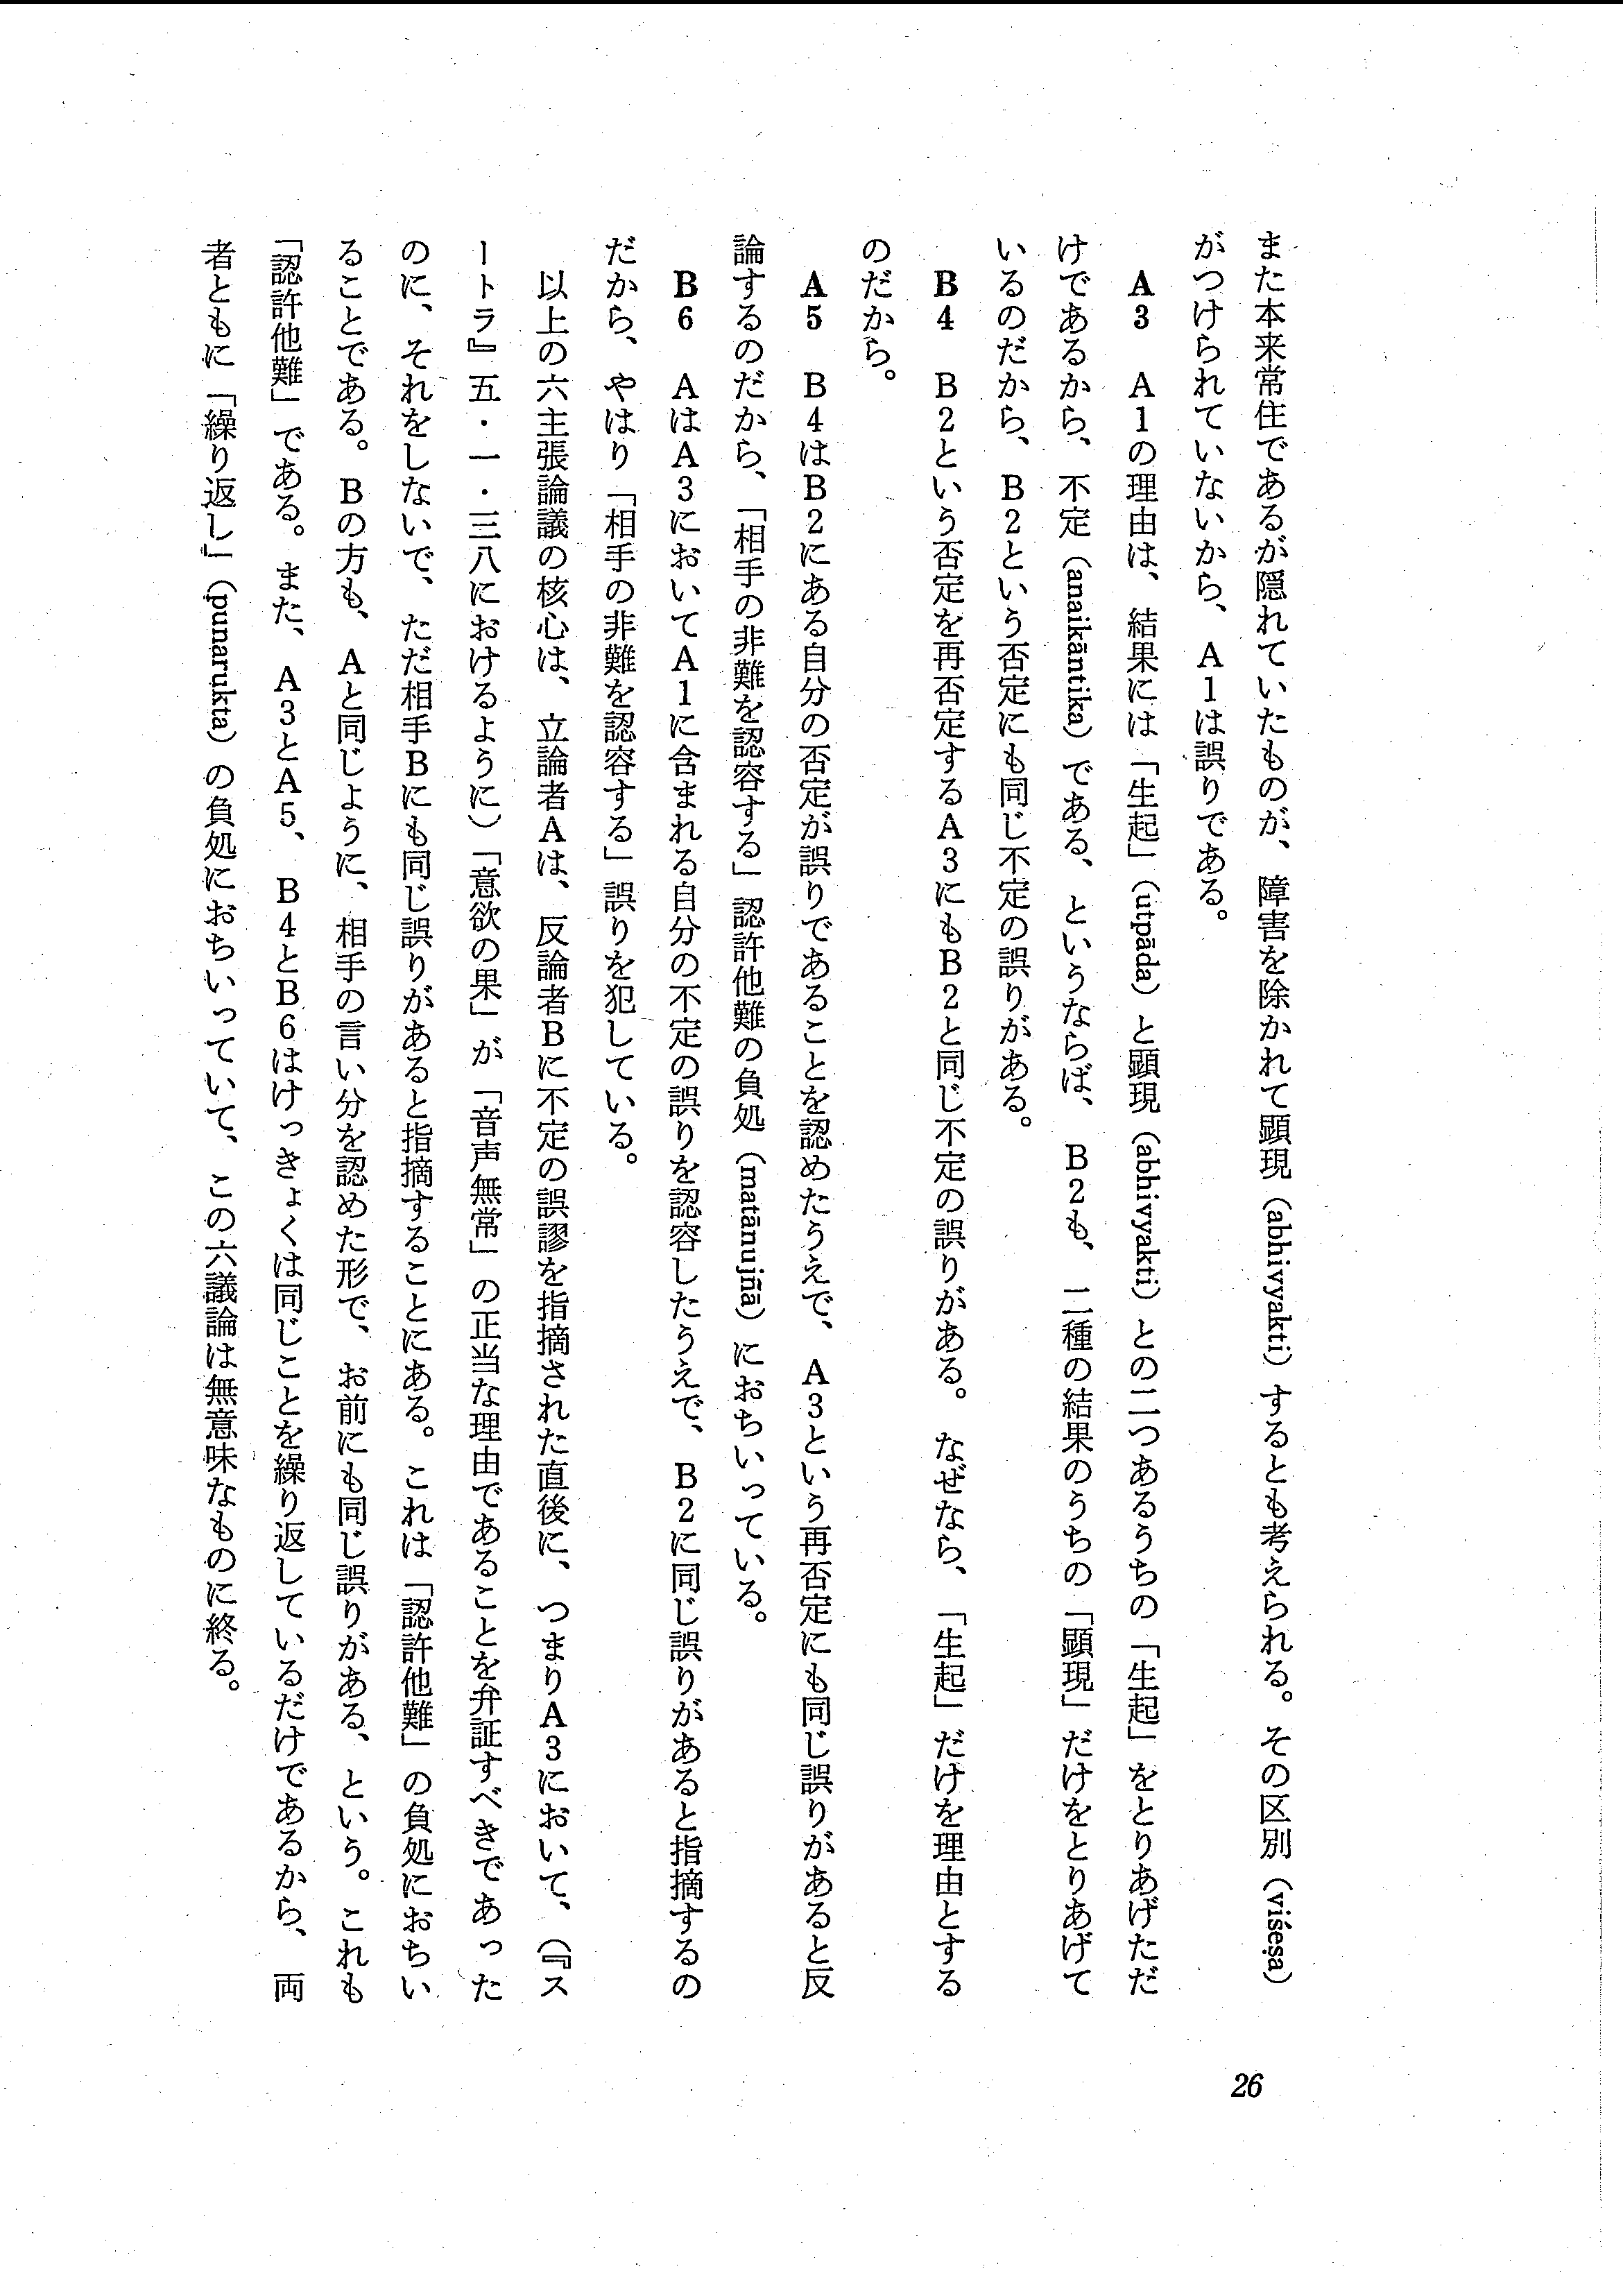 また本来常住であるが隠れていたものが、障害を除かれて顕現（abhivyakti）するとも考えられる。その区別（viśeṣa）
がつけられていないから、A1は誤りである。
A3　A1の理由は、結果には「生起」（utpāda）と顕現（abhivyakti）との二つあるうちの「生起」をとりあげただ
けであるから、不定（anaikāntika）である、というならば、B2も、二種の結果のうちの「顕現」だけをとりあげて
いるのだから、B2という否定にも同じ不定の誤りがある。
B4　B2という否定を再否定するA3にもB2と同じ不定の誤りがある。なぜなら、「生起」だけを理由とする
のだから。
A5　B4はB2にある自分の否定が誤りであることを認めたうえで、A3という再否定にも同じ誤りがあると反
論するのだから、「相手の非難を認容する」認許他難の負処（matānujñā）におちいっている。
B6　AはA3においてA1に含まれる自分の不定の誤りを認容したうえで、B2に同じ誤りがあると指摘するの
だから、やはり「相手の非難を認容する」誤りを犯している。
以上の六主張論議の核心は、立論者Aは、反論者Bに不定の誤謬を指摘された直後に、つまりA3において、（『ス
ートラ』五・一・三八におけるように）「意欲の果」が「音声無常」の正当な理由であることを弁証すべきであった
のに、それをしないで、ただ相手Bにも同じ誤りがあると指摘することにある。これは「認許他難」の負処におちい
ることである。Bの方も、Aと同じように、相手の言い分を認めた形で、お前にも同じ誤りがある、という。これも
「認許他難」である。また、A3とA5、B4とB6はけっきょくは同じことを繰り返しているだけであるから、両
者ともに「繰り返し」（punarukta）の負処におちいっていて、この六議論は無意味なものに終る。
26